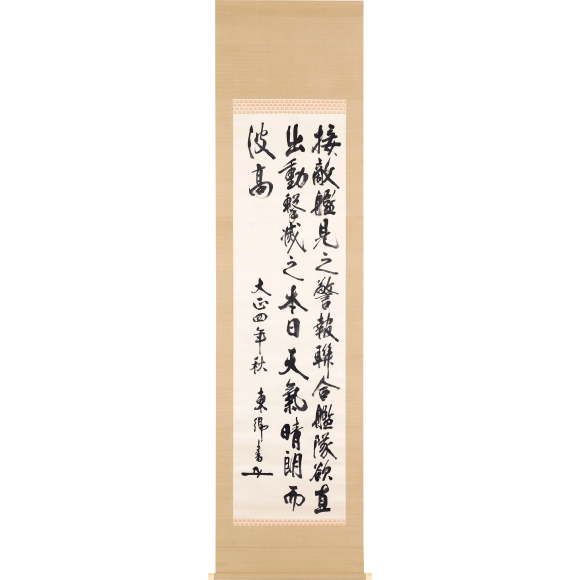 接敵艦見之警報聯合艦隊欲直
出動撃滅之本日天氣晴朗而
波高
大正四年秋 東郷書